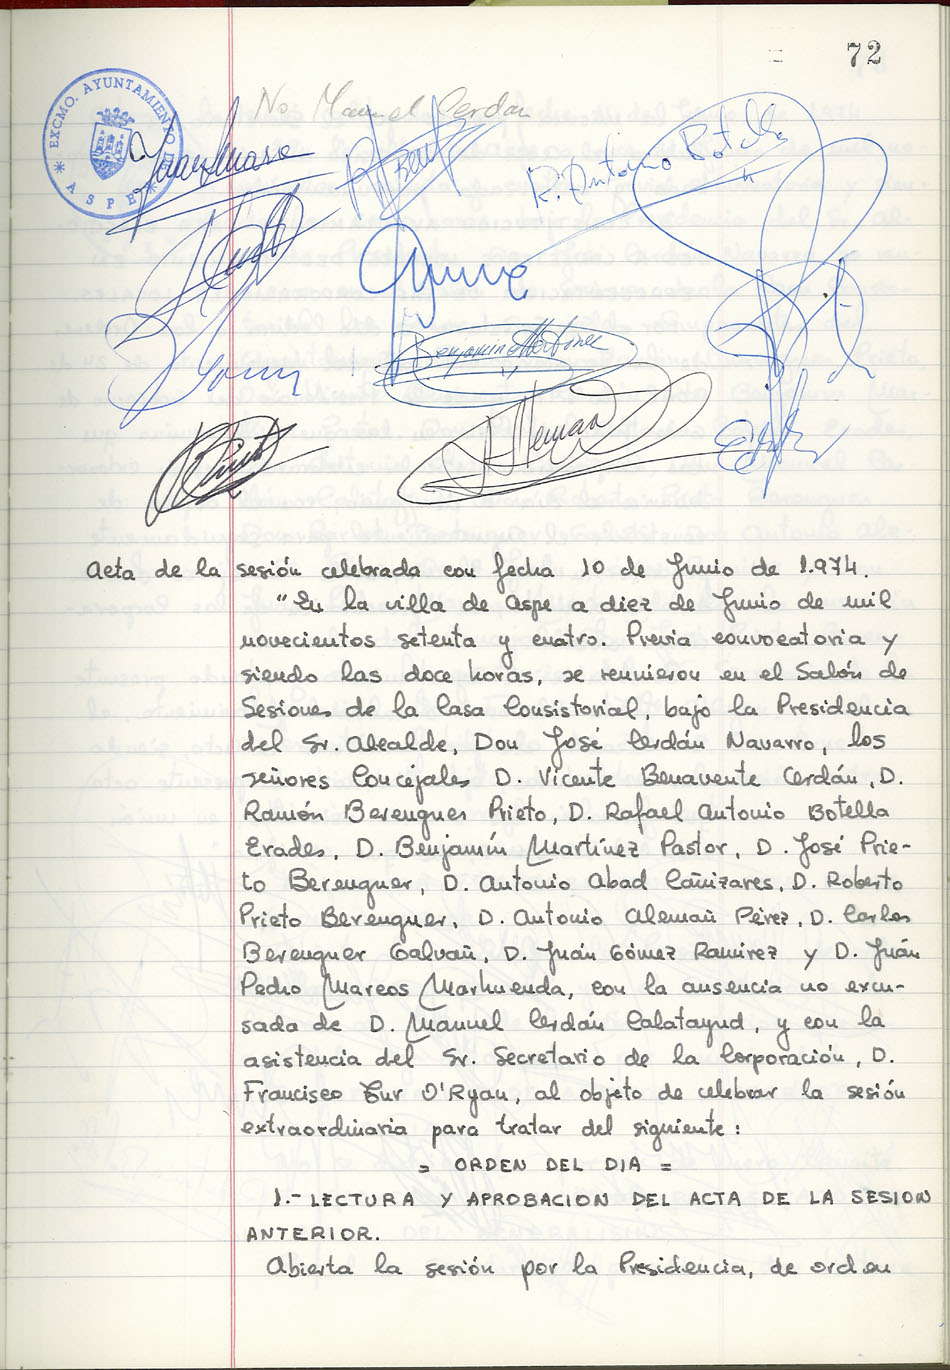 = 72
EXCMO. AYUNTAMIENTO DE
* ASPE *
No Manuel Cerdan
R. Antonio Botella
Benjamin Martinez
Aleman
Acta de la sesión celebrada con fecha 10 de Junio de 1.974.
"En la villa de Aspe a diez de Junio de mil
novecientos setenta y cuatro. Previa convocatoria y
siendo las doce horas, se reunieron en el Salón de
Sesiones de la Casa Consistorial, bajo la Presidencia
del Sr. Alcalde, Don José Cerdán Navarro, los
señores Concejales D. Vicente Benavente Cerdán, D.
Ramón Berenguer Prieto, D. Rafael Antonio Botella
Erades, D. Benjamín Martínez Pastor, D. José Prie-
to Berenguer, D. Antonio Abad Cañizares, D. Roberto
Prieto Berenguer, D. Antonio Alemañ Pérez, D. Carlos
Berenguer Galvañ, D. Juán Gómez Ramirez y D. Juán
Pedro Marcos Marhuenda, con la ausencia no excu-
sada de D. Manuel Cerdán Calatayud, y con la
asistencia del Sr. Secretario de la Corporación, D.
Francisco Tur O'Ryan, al objeto de celebrar la sesión
extraordinaria para tratar del siguiente:
= ORDEN DEL DIA =
1.- LECTURA Y APROBACION DEL ACTA DE LA SESION
ANTERIOR.
Abierta la sesión por la Presidencia, de orden